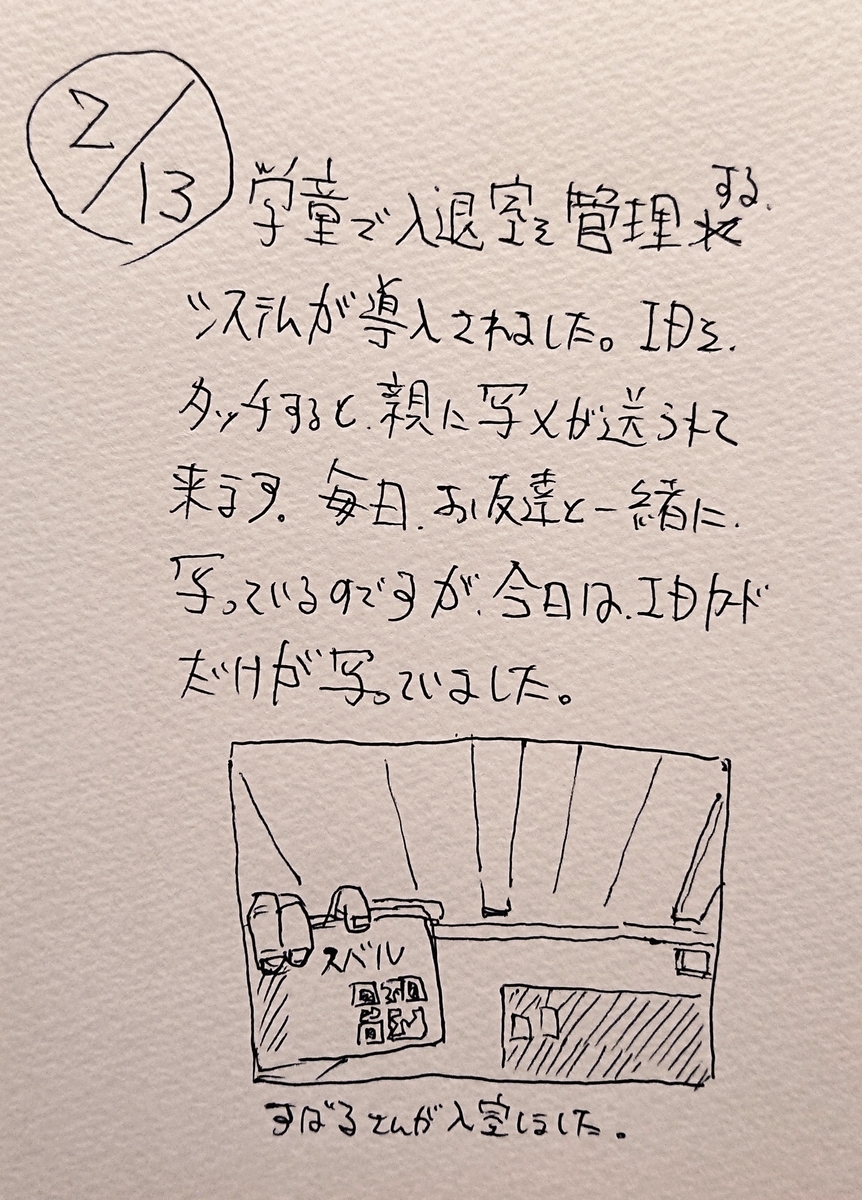 2/13
学童で入退室を管理する
システムが導入されました。IDを、
タッチすると、親に写メが送られて
来ます。毎日、お友達と一緒に、
写っているのですが、今日は、IDカード
だけが写っていました。
スバル
すばるさんが入室しました。